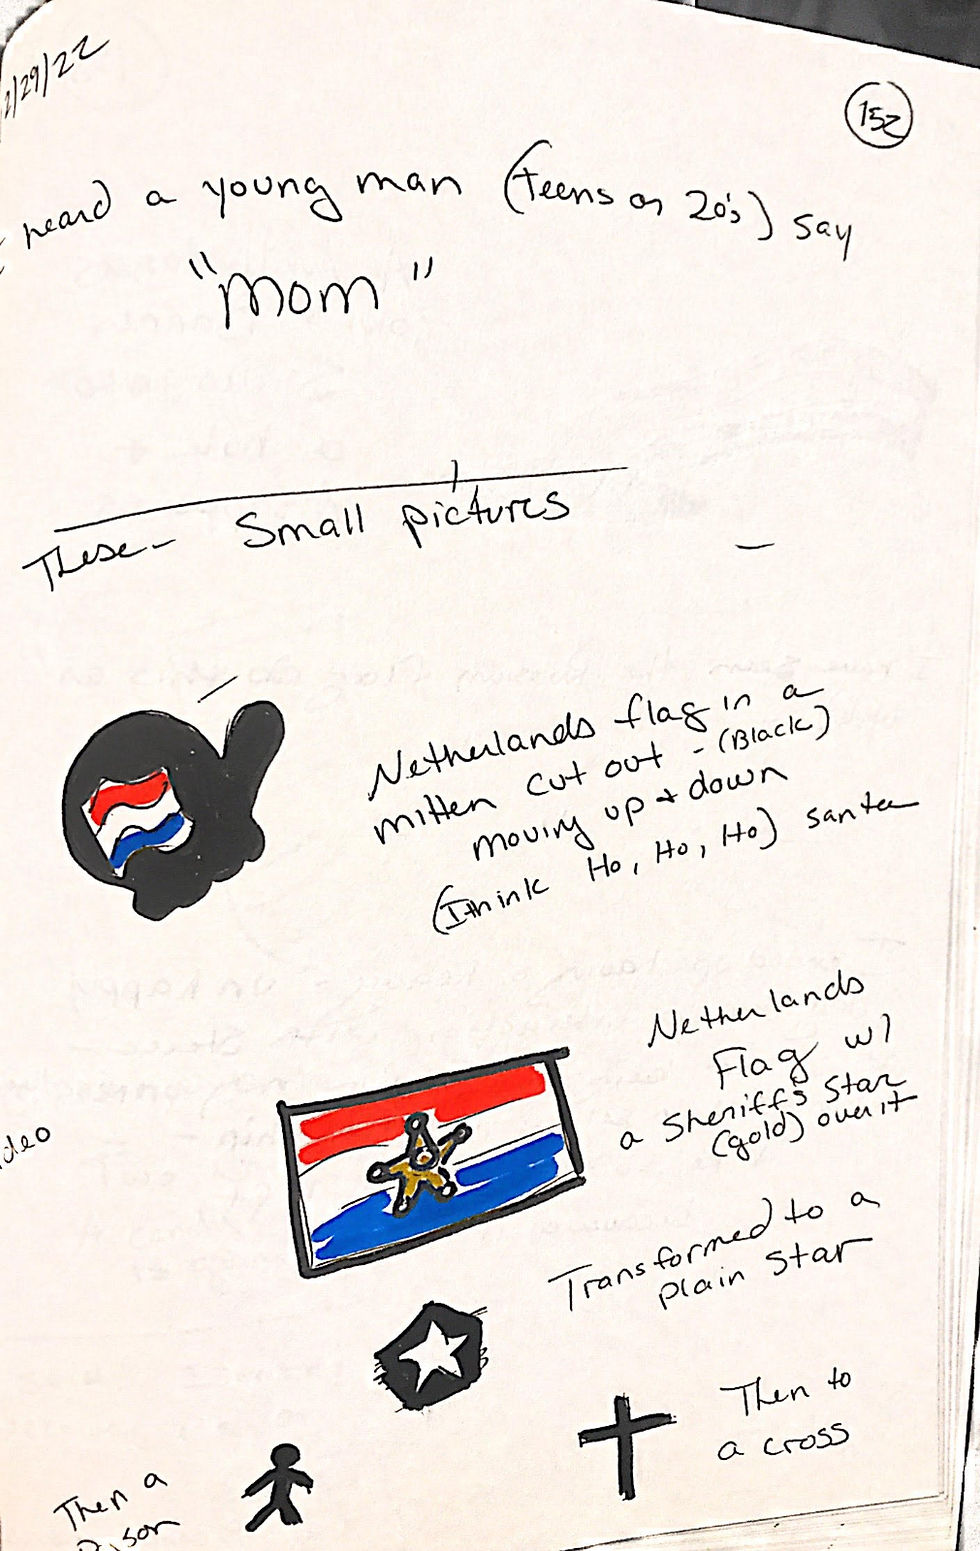 2/29/22
152
heard a young man (teens or 20's) say
"Mom"
These- Small pictures
Netherlands flag in a
mitten cut out - (Black)
moving up + down
(I think Ho, Ho, Ho) santa
Netherlands
Flag w/
a Sheriff's Star
(gold) over it
deo
Transformed to a
plain Star
Then to
a cross
Then a